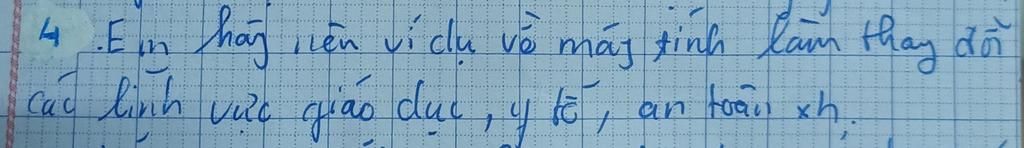 4. Em hãy nên ví dụ về máy tính làm thay đổi
các lĩnh vực giáo dục, y tế, an toàn xh.